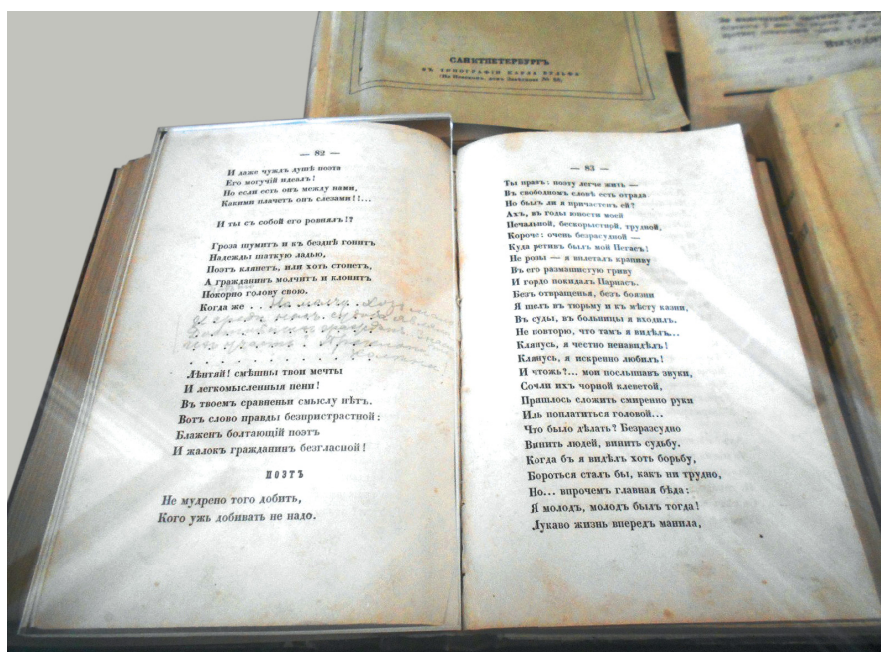 САНКТПЕТЕРБУРГЪ
ВЪ ТИПОГРАФІИ КАРЛА ВУЛЬФА
— 82 —
И даже чуждъ душѣ поэта
Его могучій идеалъ!
Но если есть онъ между нами,
Какими плачетъ онъ слезами!!...
И ты съ собой его ровнялъ!?
Гроза шумитъ и къ безднѣ гонитъ
Надежды шаткую ладью,
Поэтъ клянетъ, или хоть стонетъ,
А гражданинъ молчитъ и клонитъ
Покорно голову свою.
Когда же . .
. . . . . . . . . . . . . .
Лѣнтяй! смѣшны твои мечты
И легкомысленныя пени!
Въ твоемъ сравненьи смыслу нѣтъ.
Вотъ слово правды безпристрастной:
Блаженъ болтающій поэтъ
И жалокъ гражданинъ безгласной!
ПОЭТЪ
Не мудрено того добить,
Кого ужь добивать не надо.
— 83 —
Ты правъ: поэту легче жить —
Въ свободномъ словѣ есть отрада
Но былъ ли я причастенъ ей?
Ахъ, въ годы юности моей
Печальной, бескорыстной, трудной,
Короче: очень безрасудной —
Куда ретивъ былъ мой Пегасъ!
Не розы — я вплеталъ крапиву
Въ его размашистую гриву
И гордо покидалъ Парнасъ.
Безъ отвращенья, безъ боязни
Я шолъ въ тюрьму и къ мѣсту казни,
Въ суды, въ больницы я входилъ.
Не повторю, что тамъ я видѣлъ...
Клянусь, я честно ненавидѣлъ!
Клянусь, я искренно любилъ!
И чтожь?... мои послышавъ звуки,
Сочли ихъ чорной клеветой,
Пришлось сложить смиренно руки
Иль поплатиться головой...
Что было дѣлать? Безразсудно
Винить людей, винить судьбу.
Когда бъ я видѣлъ хоть борьбу,
Бороться сталъ бы, какъ ни трудно,
Но... впрочемъ главная бѣда:
Я молодъ, молодъ былъ тогда!
Лукаво жизнь впередъ манила,